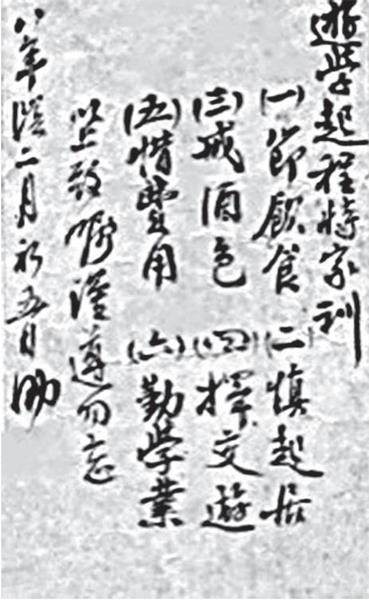 遊學起程時家訓
(一)節飲食 (二)慎起居
(三)戒酒色 (四)擇交遊
(五)惜費用 (六)勤學業
以上 嘱謹遵勿忘
八年陰二月初五日